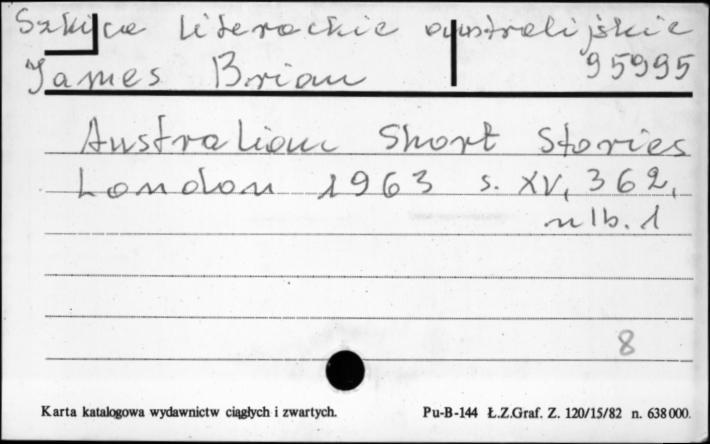 Szkice literackie australijskie
James Brian 95995
Australian Short Stories
London 1963 s. XV, 362,
nlb. 1
8
Karta katalogowa wydawnictw ciągłych i zwartych. Pu-B-144 Ł.Z.Graf. Z. 120/15/82 n. 638000.